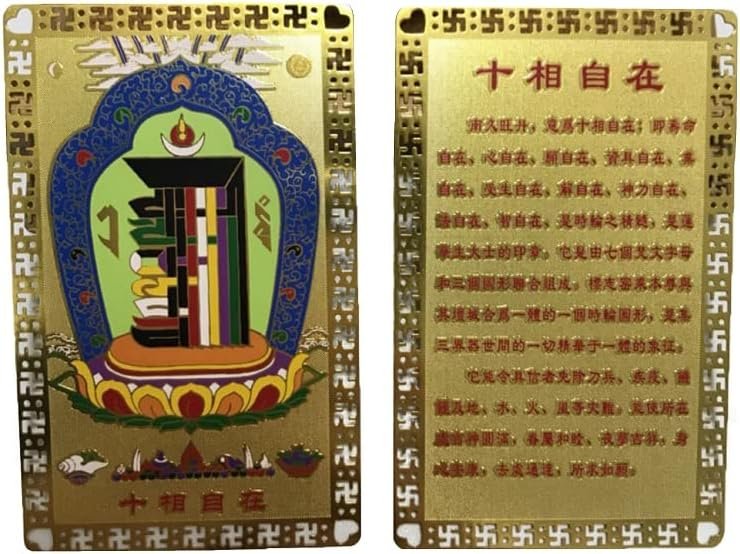 十相自在
十相自在
南久旺丹，意爲十相自在；即壽命
自在、心自在、願自在、資具自在、業
自在、受生自在、解自在、神力自在、
自在、智自在、是時輪之精髓，是蓮
華生大士的印章。它是由七個梵文字母
和三個圓形聯合組成，標志密乘本尊與
其壇城合爲一體的一個時輪圖形，是集
三界器世間的一切精華于一體的象征。
它能令具信者免除刀兵、疾疫、
及地、水、火、風等灾難，能使所在
吉神圓滿、眷屬和睦、夜夢吉祥、身
康，去處通達，所求如願。